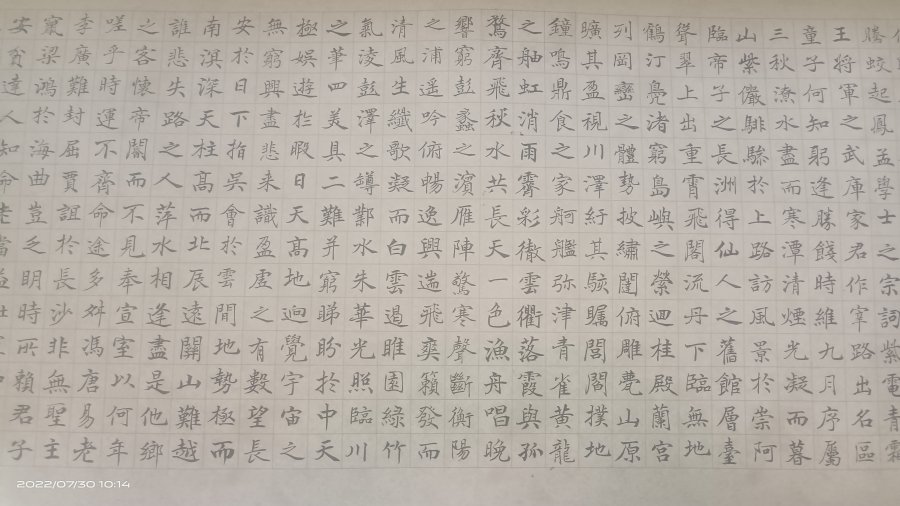 騰蛟起鳳孟學士之宗詞紫電青霜
王將軍之武庫家君作宰路出名區
童子何知躬逢勝餞時維九月序屬
三秋潦水盡而寒潭清煙光凝而暮
山紫儼騑驂於上路訪風景於崇阿
臨帝子之長洲得仙人之舊館層臺
聳翠上出重霄飛閣流丹下臨無地
鶴汀鳧渚窮島嶼之縈迴桂殿蘭宮
列岡巒之體勢披繡闥俯雕甍山原
曠其盈視川澤紆其駭矚閭閻撲地
鐘鳴鼎食之家舸艦弥津青雀黄龍
之舳虹消雨霽彩徹雲衢落霞與孤
鶩齊飛秋水共長天一色漁舟唱晚
響窮彭蠡之濱雁陣驚寒聲斷衡陽
之浦遥吟俯暢逸興遄飛爽籟發而
清風生纖歌凝而白雲遏睢園緑竹
氣凌彭澤之罇鄴水朱華光照臨川
之筆四美具二難并窮睇盼於中天
極娛遊於暇日天高地迥覺宇宙之
無窮興盡悲来識盈虛之有數望長
安於日下指吳會於雲間地勢極而
南溟深天柱高而北辰遠關山難越
誰悲失路之人萍水相逢盡是他鄉
之客懷帝閽而不見奉宣室以何年
嗟乎時運不齊命途多舛馮唐易老
李廣難封屈賈誼於長沙非無聖主
竄梁鴻於海曲豈乏明時所賴君子
安貧達人知命老當益壯
2022/07/30 10:14